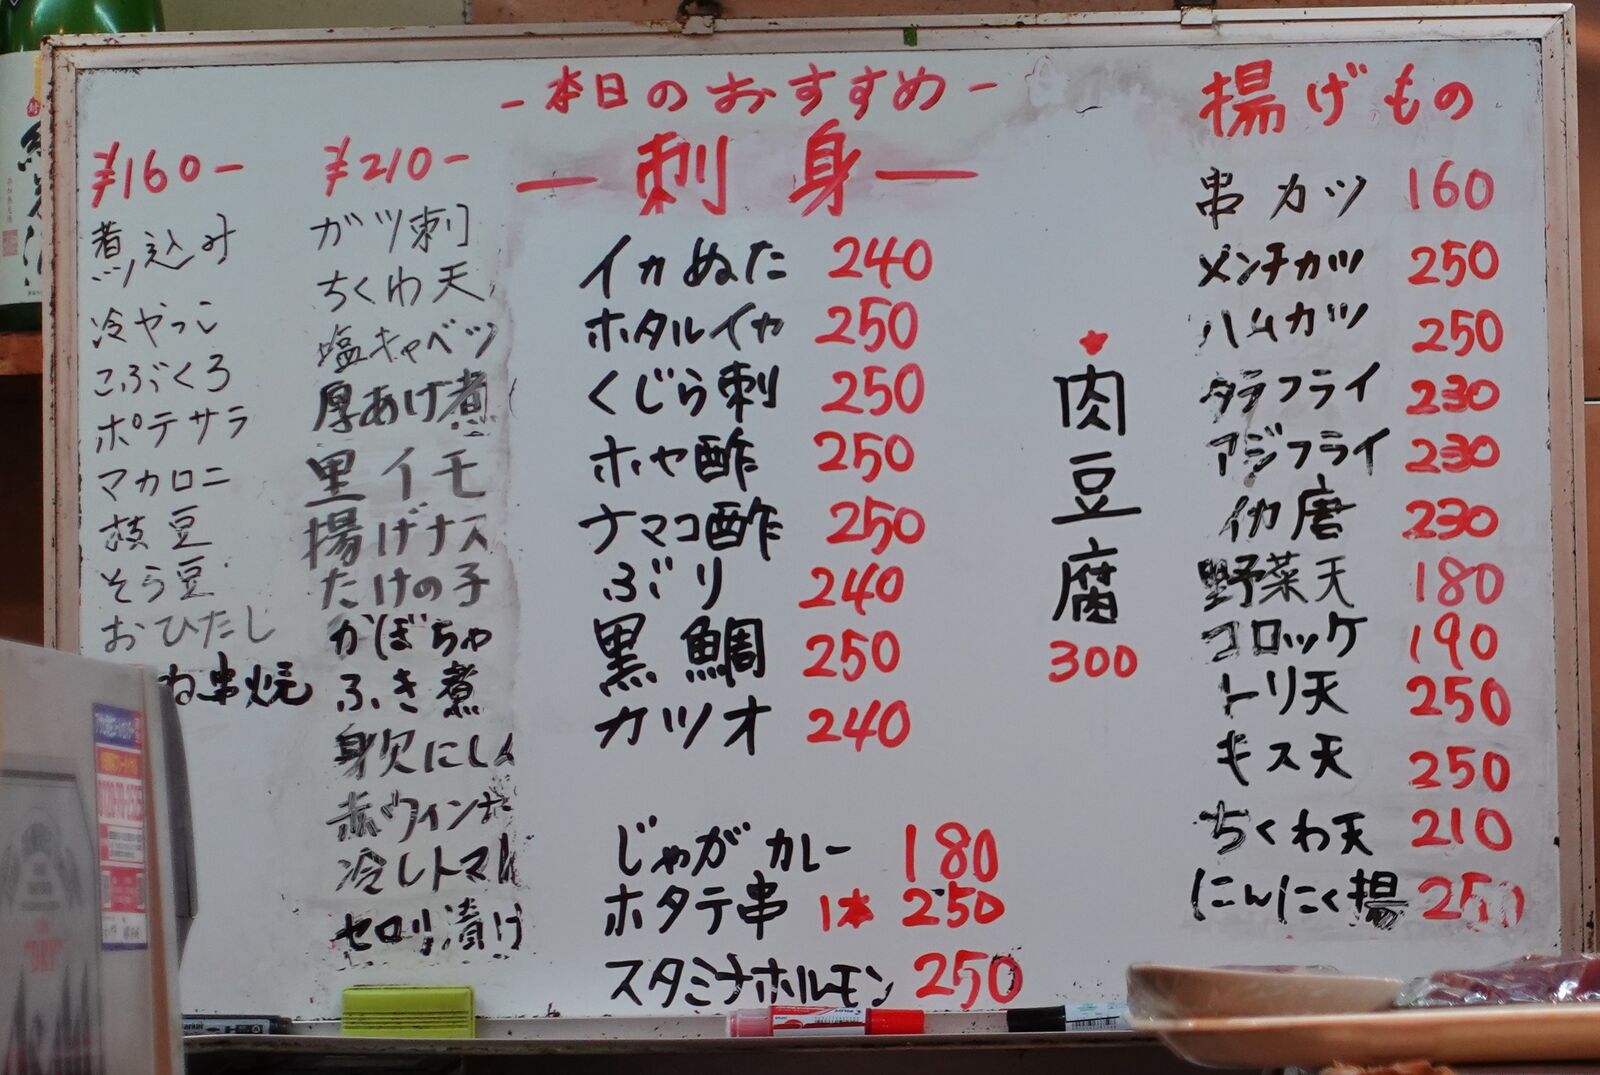 ¥160-
煮込み
冷やっこ
こぶくろ
ポテサラ
マカロニ
枝豆
そら豆
おひたし
ね串焼
¥210-
ガツ刺
ちくわ天
塩キャベツ
厚あげ煮
里イモ
揚げナス
たけの子
かぼちゃ
ふき煮
身欠にしん
赤ウィンナー
冷しトマト
セロリ漬け
-本日のおすすめ-
刺身
イカぬた 240
ホタルイカ 250
くじら刺 250
ホヤ酢 250
ナマコ酢 250
ぶり 240
黒鯛 250
カツオ 240
じゃがカレー 180
ホタテ串 1本 250
スタミナホルモン 250
肉豆腐
300
揚げもの
串カツ 160
メンチカツ 250
ハムカツ 250
タラフライ 230
アジフライ 230
イカ唐 230
野菜天 180
コロッケ 190
トリ天 250
キス天 250
ちくわ天 210
にんにく揚 250